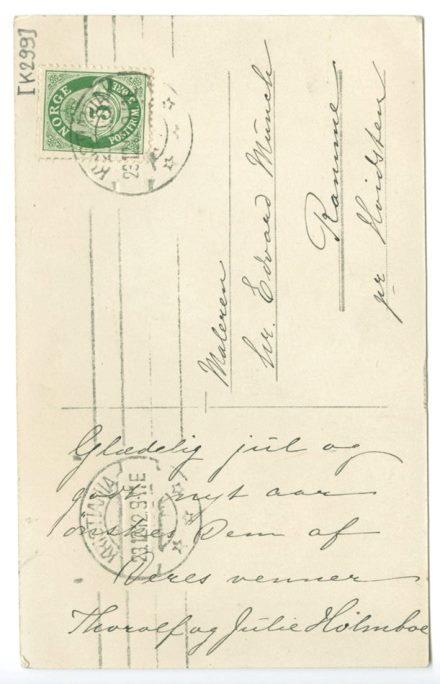 [K299]
NORGE
5
POSTFRIM
Maleren
Hr. Edvard Münch
Ramme
pr Hvidsten
Glædelig jul og
godt nyt aar
ønskes Dem af
Deres venner
Thorolf og Julie Holmboe
KRISTIANIA
23.12.12.9 H.E